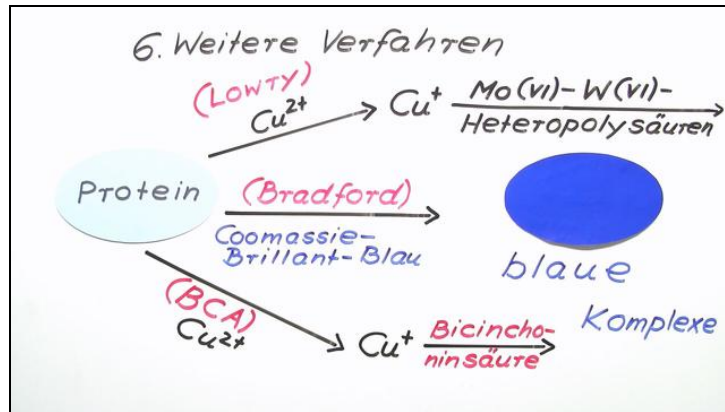 6. Weitere Verfahren
(Lowry)
Cu²⁺
Cu⁺
Mo(VI)-W(VI)-
Heteropolysäuren
Protein
(Bradford)
Coomassie-
Brillant-Blau
blaue
Komplexe
(BCA)
Cu²⁺
Cu⁺
Bicincho-
ninsäure